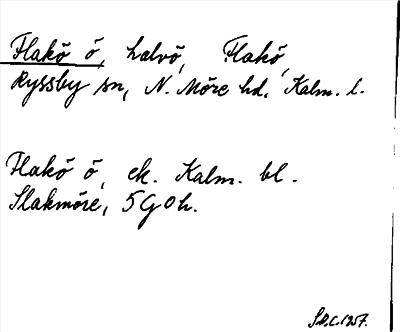 Flakö ö, halvö, Flakö,
Ryssby sn, N. Möre hd, Kalm. l.
Flakö ö, ek. Kalm. bl.
Slakmöre, 5G0h.
S.D.C. 1257.